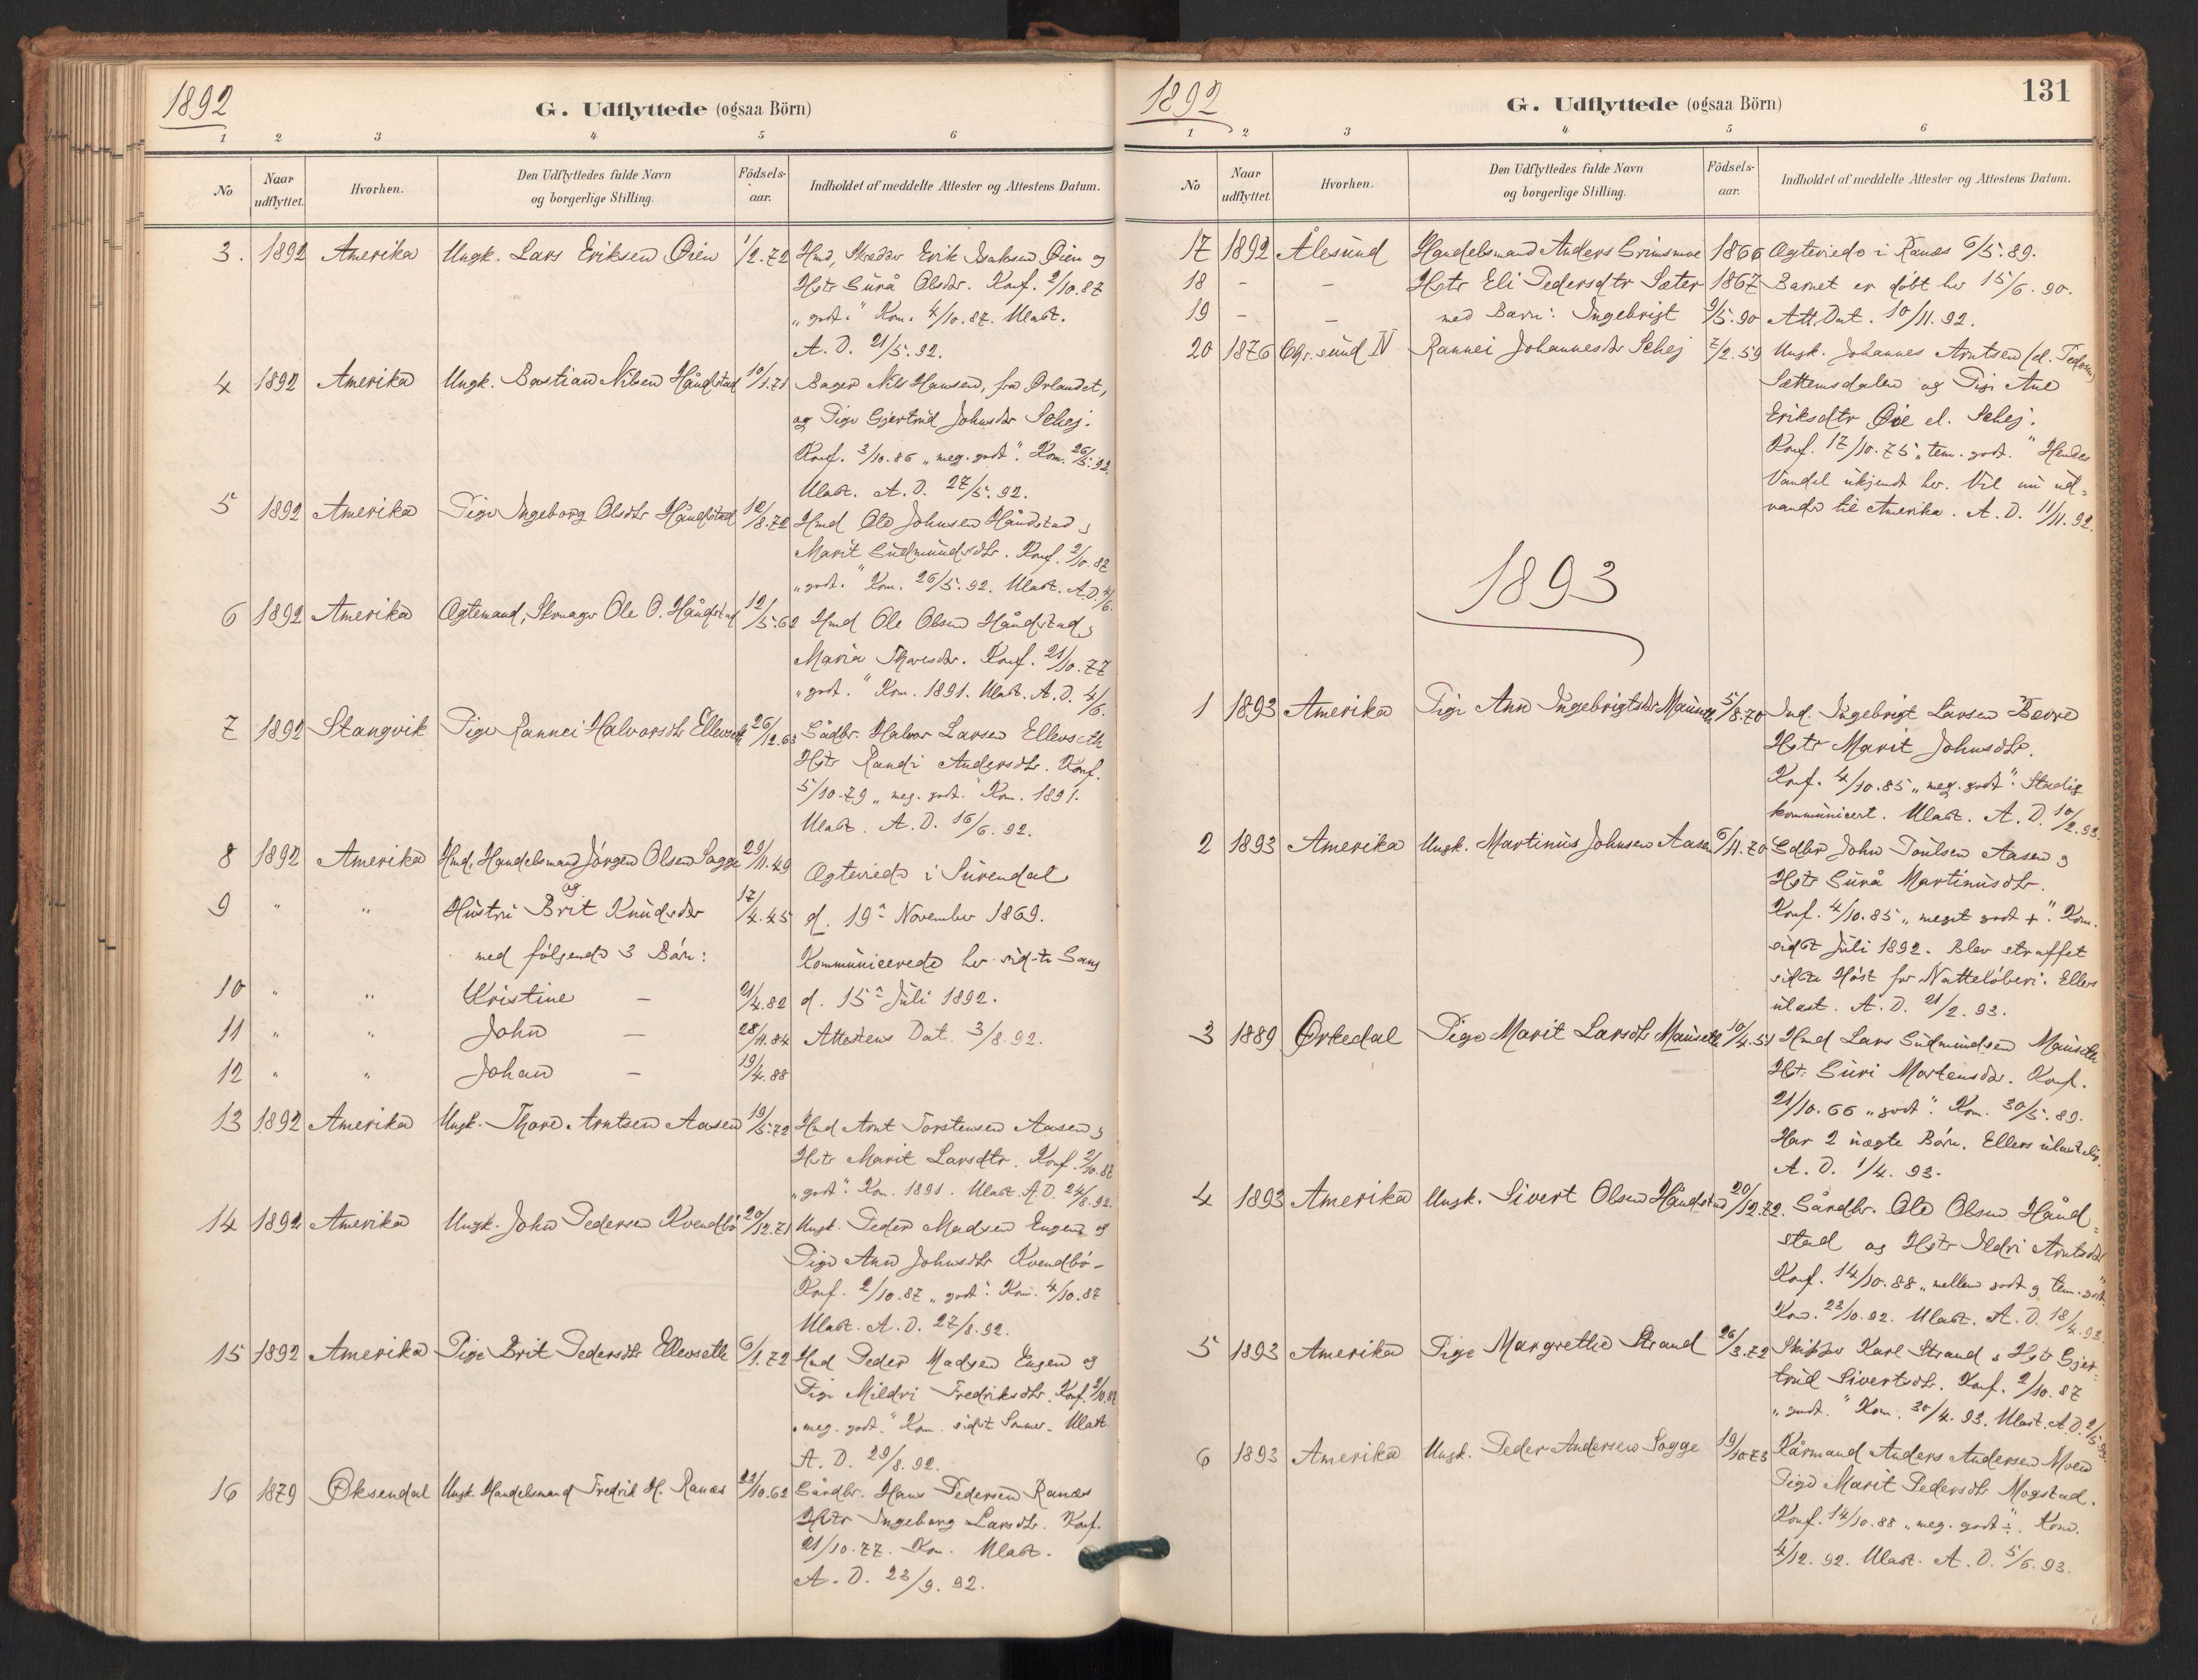 1892
G. Udflyttede (ogsaa Börn)
1 2 3 4 5 6
No Naar udflyttet. Hvorhen. Den Udflyttedes fulde Navn og borgerlige Stilling. Födsels-aar. Indholdet af meddelte Attester og Attestens Datum.
3. 1892 Amerika Ungk. Lars Eriksen Øien 1/2.72 Hmd, Skrædder Erik Isaksen Øien og
Hstr Gurå Olsdtr. Konf. 2/10.87
"godt." Kom. 4/10.87. Ulast.
A. D. 21/5.92.
4 1892 Amerika Ungk. Bastian Nilsen Håndstad 10/1.71 Bager Nils Hansen, fra Ørlandet,
og Pige Gjertrud Johnsdtr Schej.
Konf. 3/10.86 "meg. godt". Kom. 26/5.92.
Ulast. A. D. 27/5.92.
5 1892 Amerika Pige Ingeborg Olsdtr Håndstad 12/8.72 Hmd Ole Johnsen Håndstad,
Marit Gudmundsdtr. Konf. 2/10.87
"godt." Kom. 26/5.92. Ulast. A.D. 4/6.
6 1892 Amerika Ægtemand, Skomager Ole O. Håndstad 12/5.62 Hmd Ole Olsen Håndstad,
Maria Thoresdtr. Konf. 21/10.77
"godt." Kom. 1891. Ulast. A. D. 4/6.
7 1892 Stangvik Pige Rannei Halvorsdtr Ellevseth 26/12.63 Gådbr. Halvor Larsen Ellevseth
Hstr Randi Andersdtr. Konf.
5/10.79 "meg. godt." Kom. 1891.
Ulast. A. D. 16/6.92.
8 1892 Amerika Hmd, Handelsmand Jørgen Olsen Sogge 29/11.49 Ægteviede i Surendal
og
9 " " Hustru Brit Knudsdtr 17/4.45 d. 19de November 1869.
med følgende 3 Børn:
Kommunicerede her sidste Gang
10 " " Kristine – 21/4.82 d. 15de Juli 1892.
11 " " John – 28/11.84 Attestens Dat. 3/8.92.
12 " " Johan – 19/4.88
13 1892 Amerika Ungk. Thore Arntsen Aasen 19/5.72 Hmd Arnt Torstensen Aasen,
Hstr Marit Larsdtr. Konf. 2/10.87
"godt". Kom. 1891. Ulast. A.D. 24/8.92.
14 1892 Amerika Ungk. John Pedersen Kvendbø 20/12.71 Ungk. Peder Madsen Engen og
Pige Ann Johnsdtr Kvendbø –
Konf. 2/10.87 "godt". Kom. 4/10.87
Ulast. A. D. 27/8.92.
15 1892 Amerika Pige Brit Pedersdtr Ellevseth 6/1.72 Hmd Peder Madsen Engen og
Pige Mildri Fredriksdtr. Konf. 2/10.87
"meg. godt." Kom. sidst Sommer. Ulast
A. D. 29/8.92.
16 1879 Øksendal Ungk. Handelsmand Fredrik H. Ranæs 23/10.62 Gårdbr. Hans Pedersen Ranæs
Hstr Ingeborg Larsdtr. Konf.
21/10.77. Kom. Ulast.
A. D. 23/9.92.
1892
G. Udflyttede (ogsaa Börn)
131
1 2 3 4 5 6
No Naar udflyttet Hvorhen. Den Udflyttedes fulde Navn og borgerlige Stilling. Födsels-aar. Indholdet af meddelte Attester og Attestens Datum.
17 1892 Ålesund Handelsmand Anders Grimsmoe 1866 Ægteviede i Ranæs 6/5.89.
18 – – Hstr Eli Pedersdtr Sæter 1867 Barnet er døbt her 15/6.90.
19 – – med Barn: Ingebrigt 9/5.90 Att. Dat. 10/11.92.
20 1876 Chr.sund N Rannei Johannesdtr Schej 7/2.59 Ungk. Johannes Arntsen (el. Pedersen)
Sættemsdalen og Pige Ane
Eriksdtr Øie el. Schej.
Konf. 17/10.75 "tem. godt." Hendes
Vandel ukjendt her. Vil nu ud=
vandre til Amerika. A. D. 11/11.92.
1893
1 1893 Amerika Pige Ann Ingebrigtsdtr Mauseth 5/8.70 Ind. Ingebrigt Larsen Bævre
Hstr Marit Johnsdtr.
Konf. 4/10.85 "meg. godt". Stadig
kommunicert. Ulast. A. D. 10/2.93.
2 1893 Amerika Ungk. Martinus Johnsen Aasen 6/11.70 Gdbr John Poulsen Aasen,
Hstr Gurå Martinusdtr.
Konf. 4/10.85 "meget godt +". Kom.
sidst Juli 1892. Blev straffet
sidste Høst for Natteløberi. Ellers
ulast. A. D. 21/2.93.
3 1889 Ørkedal Pige Marit Larsdtr Mauseth 10/4.51 Hmd Lars Gudmundsen Mauseth
Hstr. Guri Mortensdtr. Konf.
21/10.66 "godt". Kom. 30/5.89.
Har 2 uægte Børn. Ellers ulastelig.
A. D. 1/4.93.
4 1893 Amerika Ungk. Sivert Olsen Håndstad 20/12.72. Gårdbr. Ole Olsen Hånd=
stad og Hstr Ildri Arntsdtr
Konf. 14/10.88 "mellem godt og tem. godt"
Kom. 23/10.92. Ulast. A. D. 18/4.93.
5 1893 Amerika Pige Margrethe Strand 26/3.72 Skipper Karl Strand, Hstr Gjer-
trud Sivertsdtr. Konf. 2/10.87
"godt." Kom. 30/4.93. Ulast. A.D. 2/5.93.
6 1893 Amerika Ungk. Peder Andersen Sogge 19/10.73 Kårmand Anders Andersen Moen
Pige Marit Pedersdtr Mogstad.
Konf. 14/10.88 "meg. godt ÷". Kom.
4/12.92. Ulast. A. D. 5/6.93.